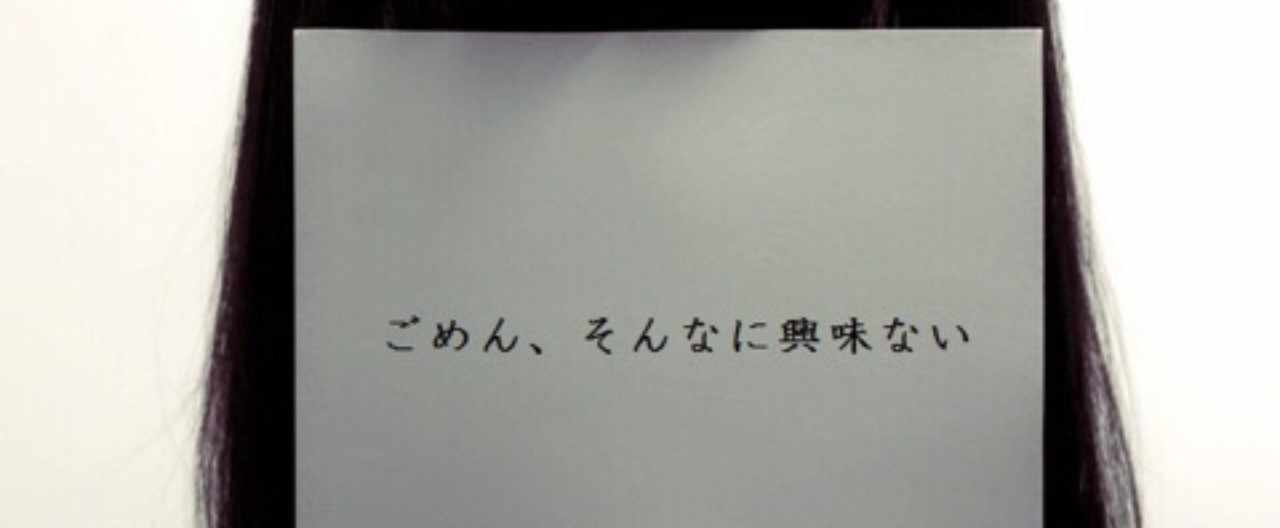 ごめん、そんなに興味ない